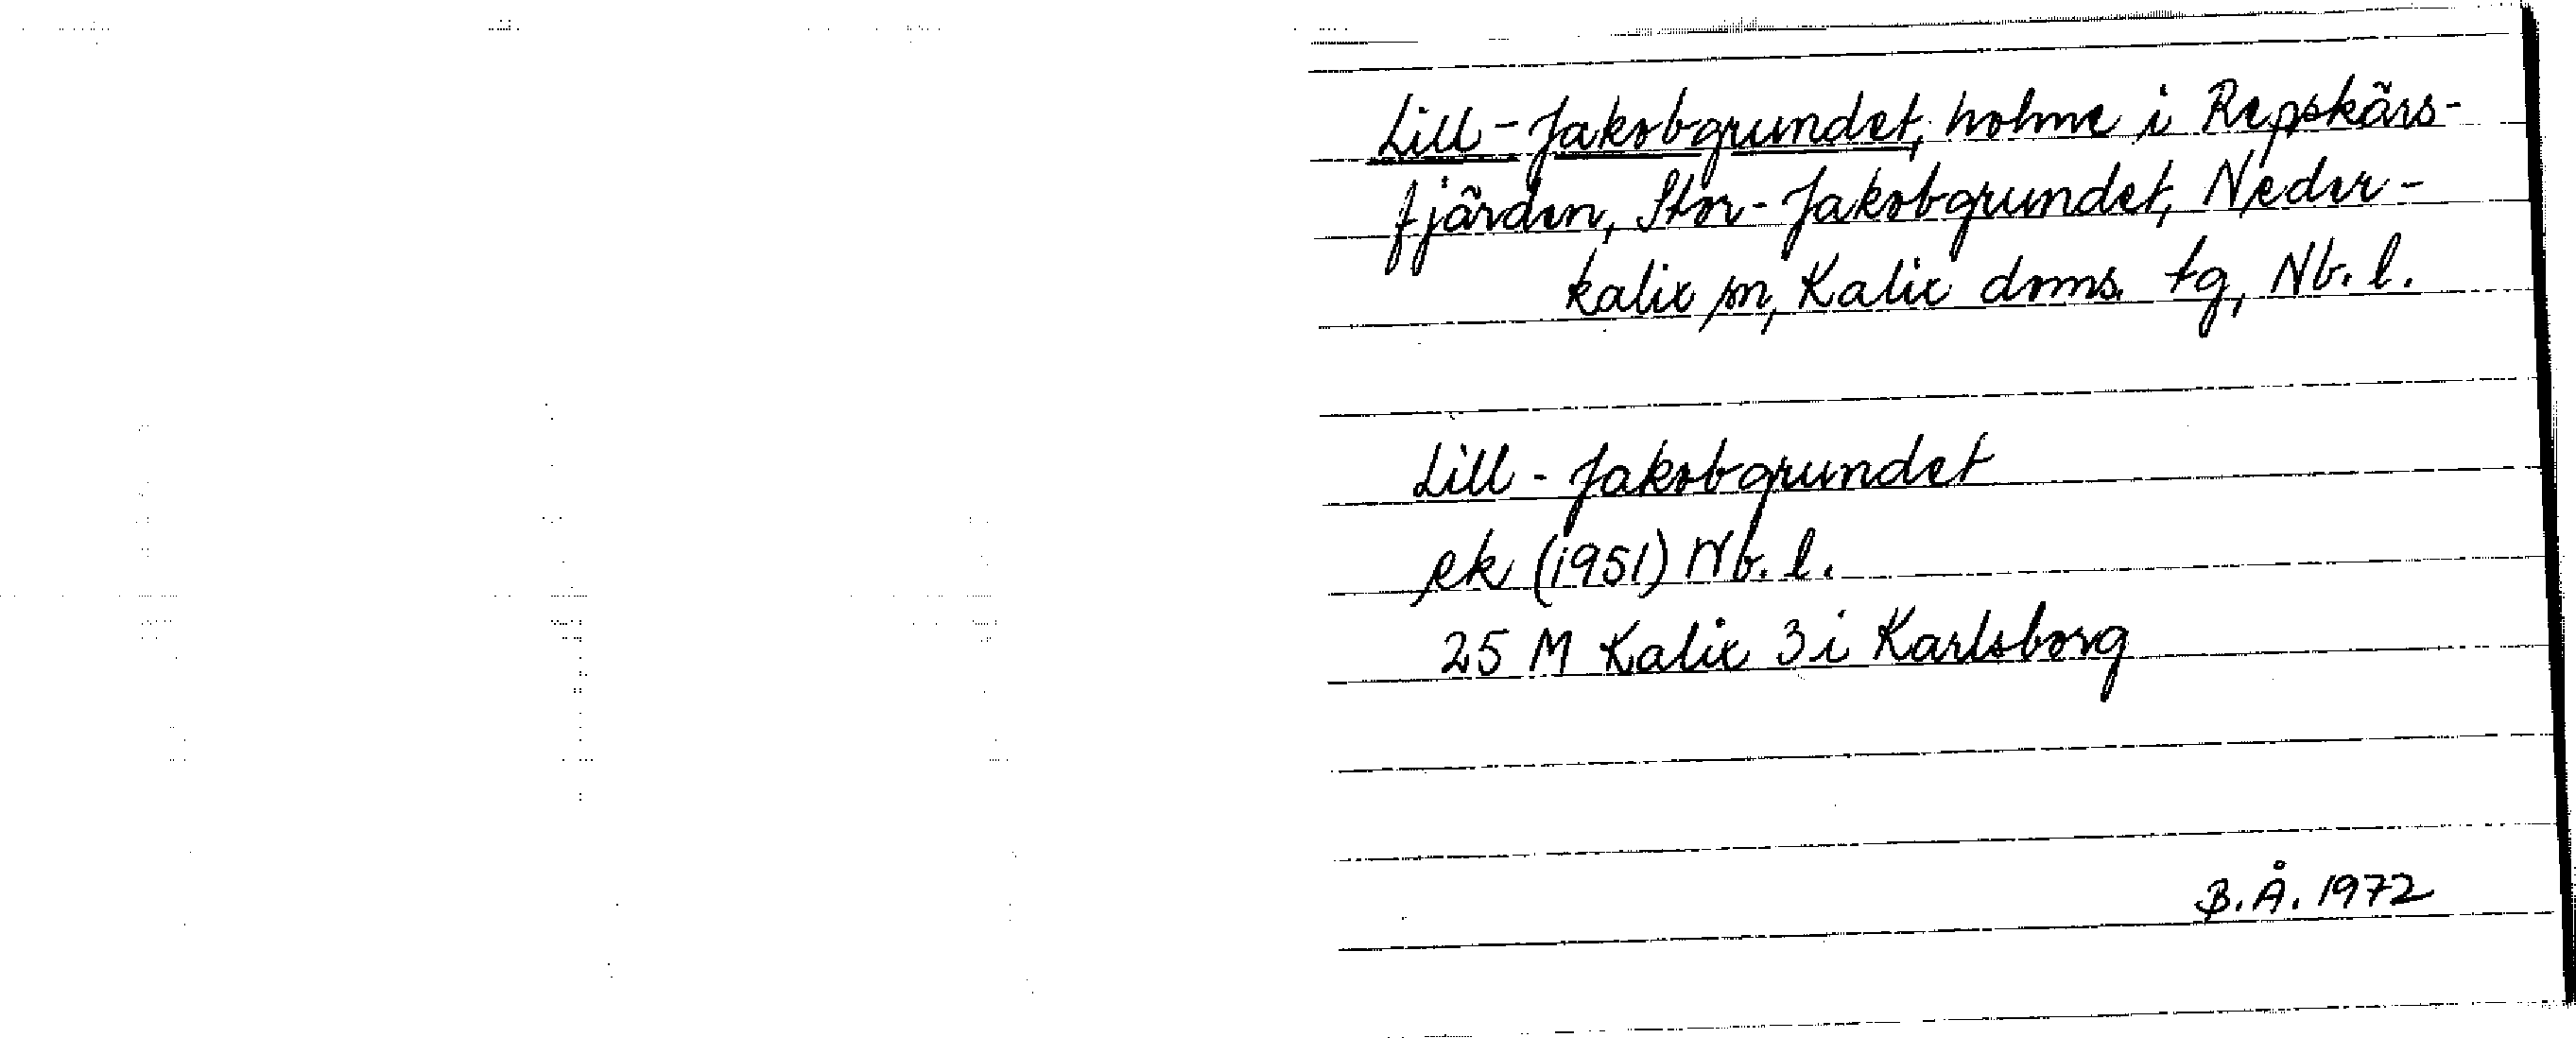 Lill-Jakobgrundet, holme i Repskärs-
fjärden, Stor-Jakobgrundet, Neder-
kalix sn, Kalix doms. tg, Nb. l.
Lill-Jakobgrundet
ek (1951) Nb. l.
25 M Kalix 3 i Karlsborg
B.Å. 1972